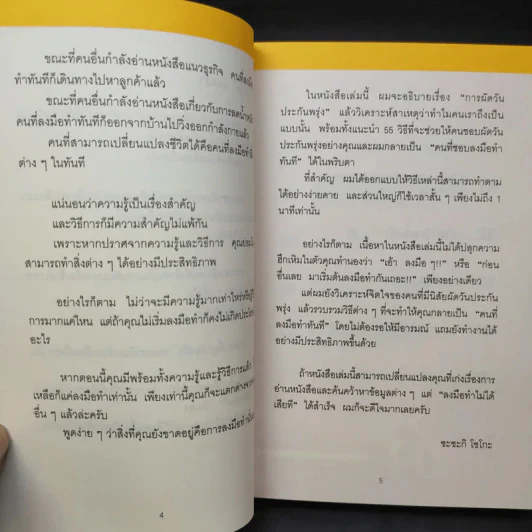 ขณะที่คนอื่นกำลังอ่านหนังสือแนวธุรกิจ คนที่ลงมือ
ทำทันทีก็เดินทางไปหาลูกค้าแล้ว
ขณะที่คนอื่นกำลังอ่านหนังสือเกี่ยวกับการลดน้ำหนัก
คนที่ลงมือทำทันทีก็ออกจากบ้านไปวิ่งออกกำลังกายแล้ว
คนที่สามารถเปลี่ยนแปลงชีวิตได้คือคนที่ลงมือทำสิ่ง
ต่าง ๆ ในทันที
แน่นอนว่าความรู้เป็นเรื่องสำคัญ
และวิธีการก็มีความสำคัญไม่แพ้กัน
เพราะหากปราศจากความรู้และวิธีการ คุณย่อมไม่
สามารถทำสิ่งต่าง ๆ ได้อย่างมีประสิทธิภาพ
อย่างไรก็ตาม ไม่ว่าจะมีความรู้มากเท่าไหร่หรือรู้วิธี
การมากแค่ไหน แต่ถ้าคุณไม่เริ่มลงมือทำก็คงไม่เกิดประโยชน์
อะไร
หากตอนนี้คุณมีพร้อมทั้งความรู้และรู้วิธีการแล้ว
เหลือก็แค่ลงมือทำเท่านั้น เพียงเท่านี้คุณก็จะแตกต่างจากคน
อื่น ๆ แล้วล่ะครับ
พูดง่าย ๆ ว่าสิ่งที่คุณยังขาดอยู่คือการลงมือทำ
4
ในหนังสือเล่มนี้ ผมจะอธิบายเรื่อง “การผัดวัน
ประกันพรุ่ง” แล้ววิเคราะห์สาเหตุว่าทำไมคนเราถึงเป็น
แบบนั้น พร้อมทั้งแนะนำ 55 วิธีที่จะช่วยให้คนชอบผัดวัน
ประกันพรุ่งอย่างคุณและผมกลายเป็น “คนที่ชอบลงมือทำ
ทันที” ได้ในพริบตา
ที่สำคัญ ผมได้ออกแบบให้วิธีเหล่านี้สามารถทำตาม
ได้อย่างง่ายดาย และส่วนใหญ่ก็ใช้เวลาสั้น ๆ เพียงไม่ถึง 1
นาทีเท่านั้น
อย่างไรก็ตาม เนื้อหาในหนังสือเล่มนี้ไม่ได้ปลุกความ
ฮึกเหิมในตัวคุณทำนองว่า “เอ้า ลงมือ ๆ!!” หรือ “ก่อน
อื่นเลย มาเริ่มต้นลงมือทำกันเถอะ!!” เพียงอย่างเดียว
แต่ผมยังวิเคราะห์จิตใจของคนที่มีนิสัยผัดวันประกัน
พรุ่ง แล้วรวบรวมวิธีต่าง ๆ ที่จะทำให้คุณกลายเป็น “คนที่
ลงมือทำทันที” โดยไม่ต้องรอให้มีอารมณ์ แถมยังทำงานได้
อย่างมีประสิทธิภาพขึ้นด้วย
ถ้าหนังสือเล่มนี้สามารถเปลี่ยนแปลงคุณที่เก่งเรื่องการ
อ่านหนังสือและค้นคว้าหาข้อมูลต่าง ๆ แต่ “ลงมือทำไม่ได้
เสียที” ได้สำเร็จ ผมก็จะดีใจมากเลยครับ
ซะซะกิ โชโกะ
5